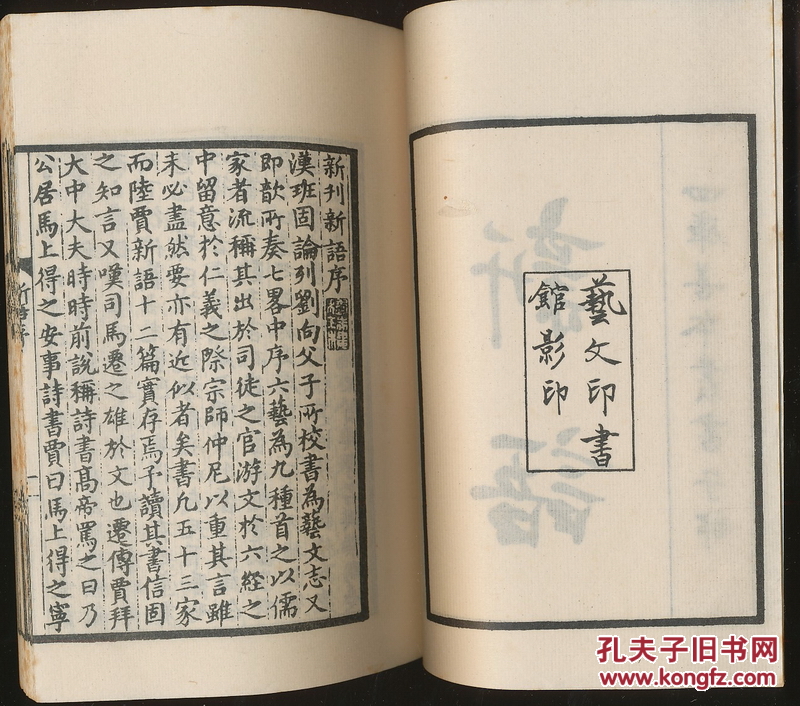 藝文印書
館影印
新刊新語序
漢班固論列劉向父子所校書為藝文志又
即歆所奏七畧中序六藝為九種首之以儒
家者流稱其出於司徒之官游文於六經之
中留意於仁義之際宗師仲尼以重其言雖
未必盡然要亦有近似者矣書凡五十三家
而陸賈新語十二篇實存焉予讀其書信固
之知言又嘆司馬遷之雄於文也遷傳賈拜
大中大夫時時前說稱詩書髙帝罵之曰乃
公居馬上得之安事詩書賈曰馬上得之寧
新語序
新
語
孔夫子旧书网
www.kongfz.com